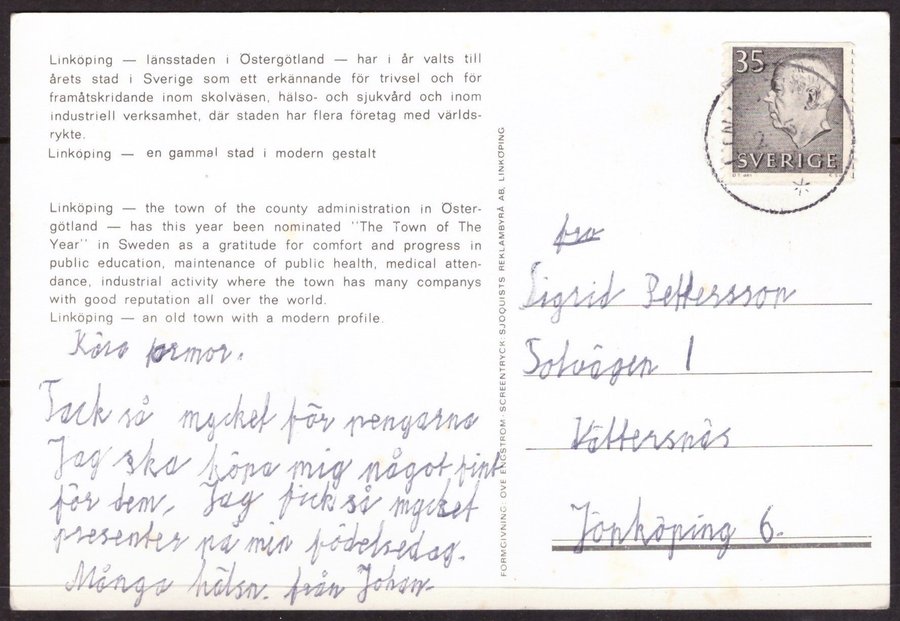 Linköping — länsstaden i Östergötland — har i år valts till
årets stad i Sverige som ett erkännande för trivsel och för
framåtskridande inom skolväsen, hälso- och sjukvård och inom
industriell verksamhet, där staden har flera företag med världs-
rykte.
Linköping — en gammal stad i modern gestalt
Linköping — the town of the county administration in Öster-
götland — has this year been nominated "The Town of The
Year" in Sweden as a gratitude for comfort and progress in
public education, maintenance of public health, medical atten-
dance, industrial activity where the town has many companys
with good reputation all over the world.
Linköping — an old town with a modern profile.
Kära farmor.
Tack så mycket för pengarna
Jag ska köpa mig något fint
för dem. Jag fick så mycket
presenter på min födelsedag.
Många hälsn. från Johan.
FORMGIVNING: OVE ENGSTRÖM · SCREENTRYCK: SJÖQUISTS REKLAMBYRÅ AB, LINKÖPING
35
SVERIGE
fru
Sigrid Pettersson
Solvägen 1
Vättersnäs
Jönköping 6.